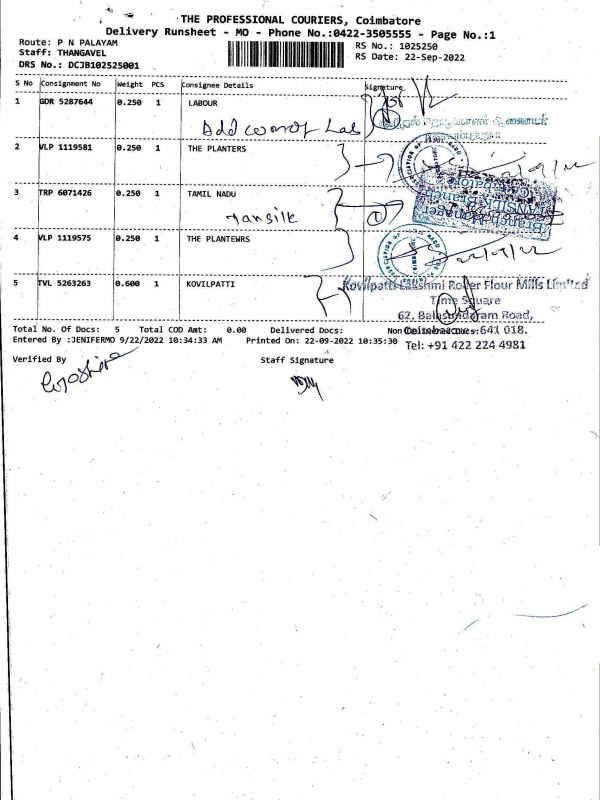 THE PROFESSIONAL COURIERS, Coimbatore
Delivery Runsheet - MO - Phone No.:0422-3505555 - Page No.:1
Route: P N PALAYAM
Staff: THANGAVEL
DRS No.: DCJB102525001
RS No.: 1025250
RS Date: 22-Sep-2022
S No Consignment No Weight PCS Consignee Details Signature
1 GDR 5287644 0.250 1 LABOUR
Add comof Lab
2 VLP 1119581 0.250 1 THE PLANTERS
3 TRP 6071426 0.250 1 TAMIL NADU
Tansilk 1
Branch Manager
4 VLP 1119575 0.250 1 THE PLANTEWRS
5 TVL 5263263 0.600 1 KOVILPATTI
Kovilpatti Lakshmi Roller Flour Mills Limited
Time Square
62, Balasundaram Road,
Total No. Of Docs: 5 Total COD Amt: 0.00 Delivered Docs: Non
Coimbatore - 641 018.
Entered By :JENIFERMO 9/22/2022 10:34:33 AM Printed On: 22-09-2022 10:35:30
Tel: +91 422 224 4981
Verified By Staff Signature